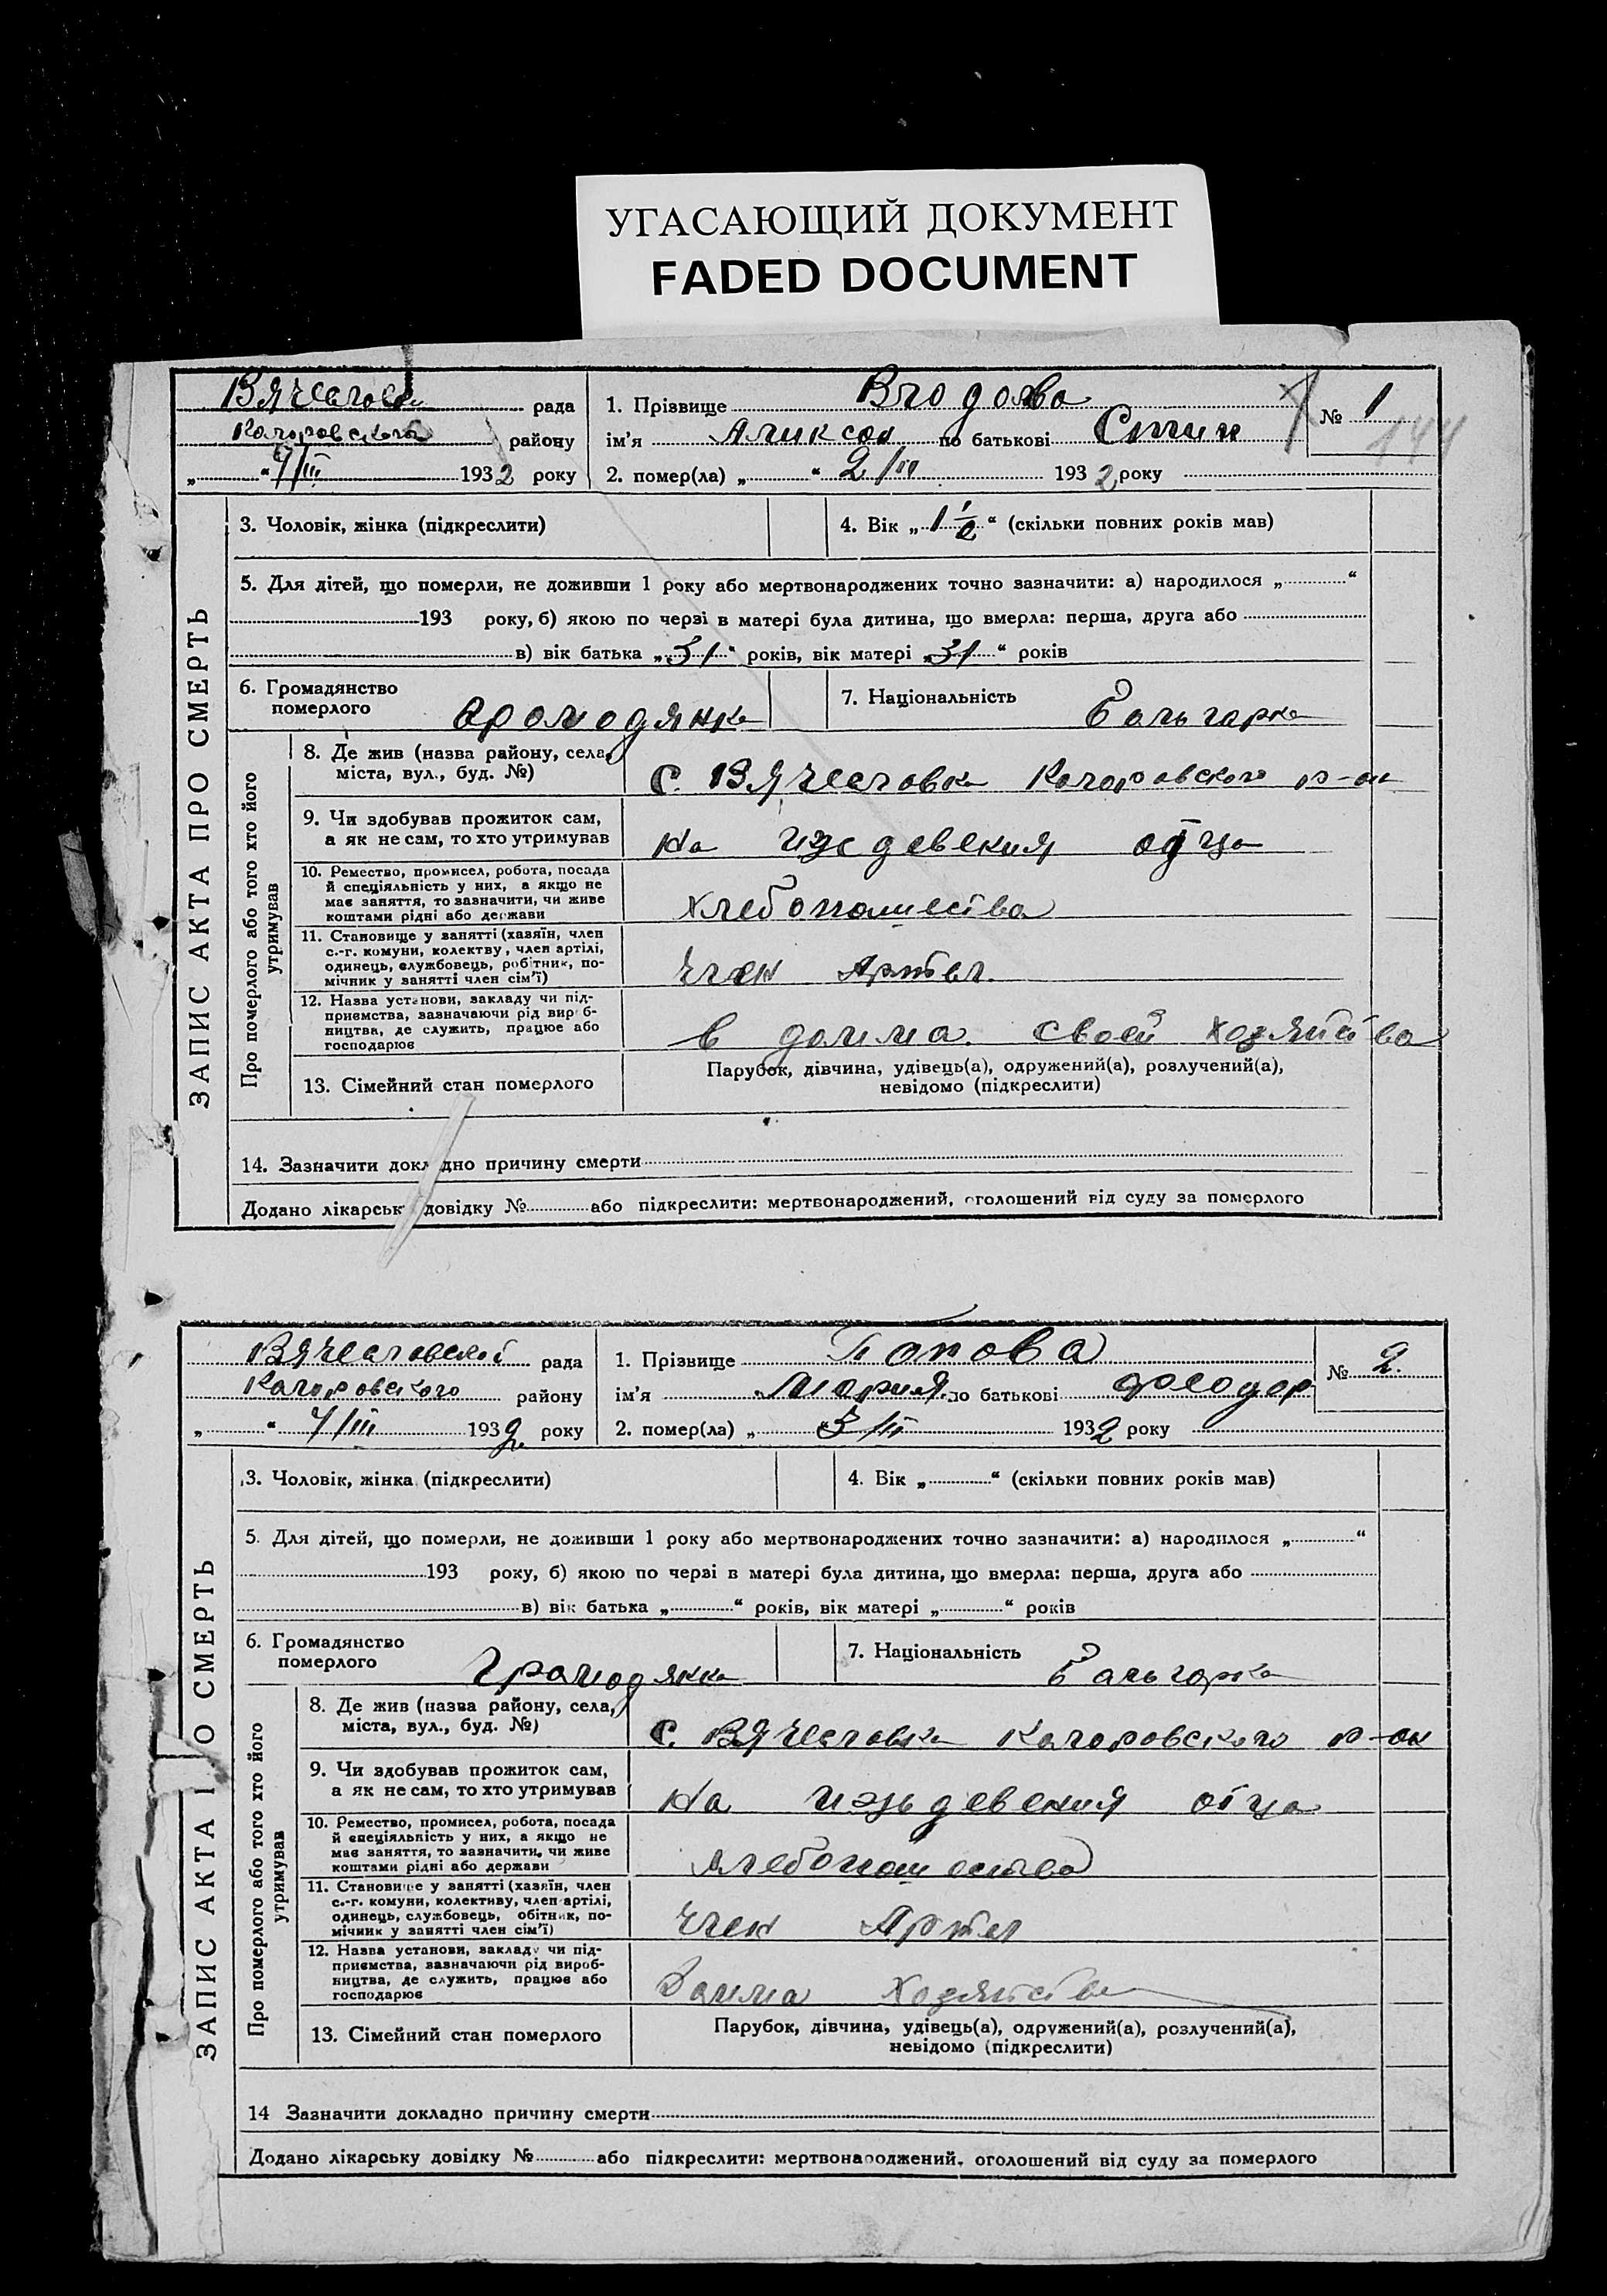 УГАСАЮЩИЙ ДОКУМЕНТ
FADED DOCUMENT
рада
Кагоровского району
„ “ 7/III 1932 року
1. Прізвище
ім'я Аликсан по батькові Степ
2. помер(ла) „ “ 2/III 1932 року
№ 1
144
ЗАПИС АКТА ПРО СМЕРТЬ
3. Чоловік, жінка (підкреслити)
4. Вік „1 1/2“ (скільки повних років мав)
5. Для дітей, що померли, не доживши 1 року або мертвонароджених точно зазначити: а) народилося „ “
193 року, б) якою по черзі в матері була дитина, що вмерла: перша, друга або
в) вік батька „31“ років, вік матері „31“ років
6. Громадянство
померлого громодянка
7. Національність Больгарка
Про померлого або того хто його
утримував
8. Де жив (назва району, села,
міста, вул., буд. №) с. Вячеловка Кагоровского р-он
9. Чи здобував прожиток сам,
а як не сам, то хто утримував На издевения отца
10. Ремество, промисел, робота, посада
й спеціяльність у них, а якщо не
має заняття, то зазначити, чи живе
коштами рідні або держави хлебопашества
11. Становище у занятті (хазяїн, член
с.-г. комуни, колектву, член артілі,
одинець, службовець, робітник, по-
мічник у занятті член сім'ї) Член Артел.
12. Назва установи, закладу чи під-
приємства, зазначаючи рід вироб-
ництва, де служить, працює або
господарює в домма. своей хозяйства
13. Сімейний стан померлого
Парубок, дівчина, удівець(а), одружений(а), розлучений(а),
невідомо (підкреслити)
14. Зазначити докладно причину смерти
Додано лікарськ довідку № або підкреслити: мертвонароджений, оголошений від суду за померлого
Вячеловской рада
Кагоровского району
„ “ 7/III 1932 року
1. Прізвище Попова
ім'я Мария по батькові Феодор
2. помер(ла) „ 3/III 1932 року
№ 2.
ЗАПИС АКТА ПРО СМЕРТЬ
3. Чоловік, жінка (підкреслити)
4. Вік „ “ (скільки повних років мав)
5. Для дітей, що померли, не доживши 1 року або мертвонароджених точно зазначити: а) народилося „ “
193 року, б) якою по черзі в матері була дитина, що вмерла: перша, друга або
в) вік батька „ “ років, вік матері „ “ років
6. Громадянство
померлого громодянка
7. Національність Больгарка
Про померлого або того хто його
утримував
8. Де жив (назва району, села,
міста, вул., буд. №) с. Вячеловка Кагоровского р-он
9. Чи здобував прожиток сам,
а як не сам, то хто утримував На изьдевения отца
10. Ремество, промисел, робота, посада
й спеціяльність у них, а якщо не
має заняття, то зазначити, чи живе
коштами рідні або держави хлебопашества
11. Становище у занятті (хазяїн, член
с.-г. комуни, колективу, член артілі,
одинець, службовець, обітник, по-
мічник у занятті член сім'ї) Член Артел
12. Назва установи, закладу чи під-
приємства, зазначаючи рід вироб-
ництва, де служить, працює або
господарює Домма Хозяйства
13. Сімейний стан померлого
Парубок, дівчина, удівець(а), одружений(а), розлучений(а),
невідомо (підкреслити)
14 Зазначити докладно причину смерти
Додано лікарську довідку № або підкреслити: мертвонароджений, оголошений від суду за померлого